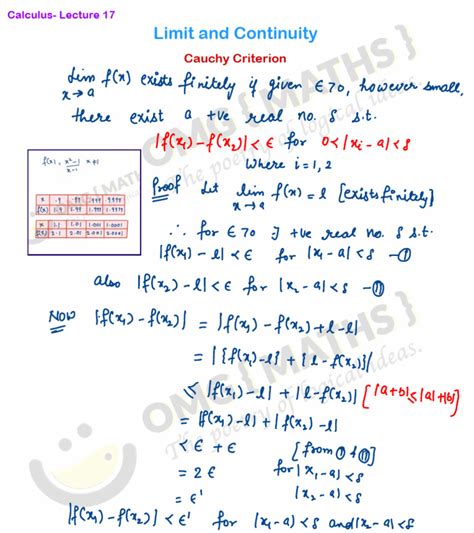 Calculus- Lecture 17
Limit and Continuity
Cauchy Criterion
Lim f(x) exists finitely if given ∈>0, however small,
x→a
there exist a +ve real no. δ s.t.
|f(x₁)-f(x₂)|<∈ for 0<|xᵢ-a|<δ
where i=1,2
f(x) = x²-1/x-1 x≠1
x .9 .99 .999 .9999
f(x) 1.9 1.99 1.999 1.9999
x 1.1 1.01 1.001 1.0001
f(x) 2.1 2.01 2.001 2.0001
Proof Let lim f(x)=l [exists finitely]
x→a
∴ for ∈>0 ∃ +ve real no. δ s.t.
|f(x₁)-l|<∈ for |x₁-a|<δ -Ⓘ
also |f(x₂)-l|<∈ for |x₂-a|<δ -Ⓘ︎Ⓘ
Now |f(x₁)-f(x₂)| = |f(x₁)-f(x₂)+l-l|
= |{f(x₁)-l}+{l-f(x₂)}|
≤ |f(x₁)-l|+|l-f(x₂)| [|a+b|≤|a|+|b|]
= |f(x₁)-l|+|f(x₂)-l|
< ∈ + ∈ [from Ⓘ & ⒾⒾ]
= 2∈ for |x₁-a|<δ
= ∈' |x₂-a|<δ
|f(x₁)-f(x₂)|<∈' for |x₁-a|<δ and |x₂-a|<δ
OMG{MATHS}
The poetry of logical ideas.
OMG{MATHS}
The poetry of logical ideas.